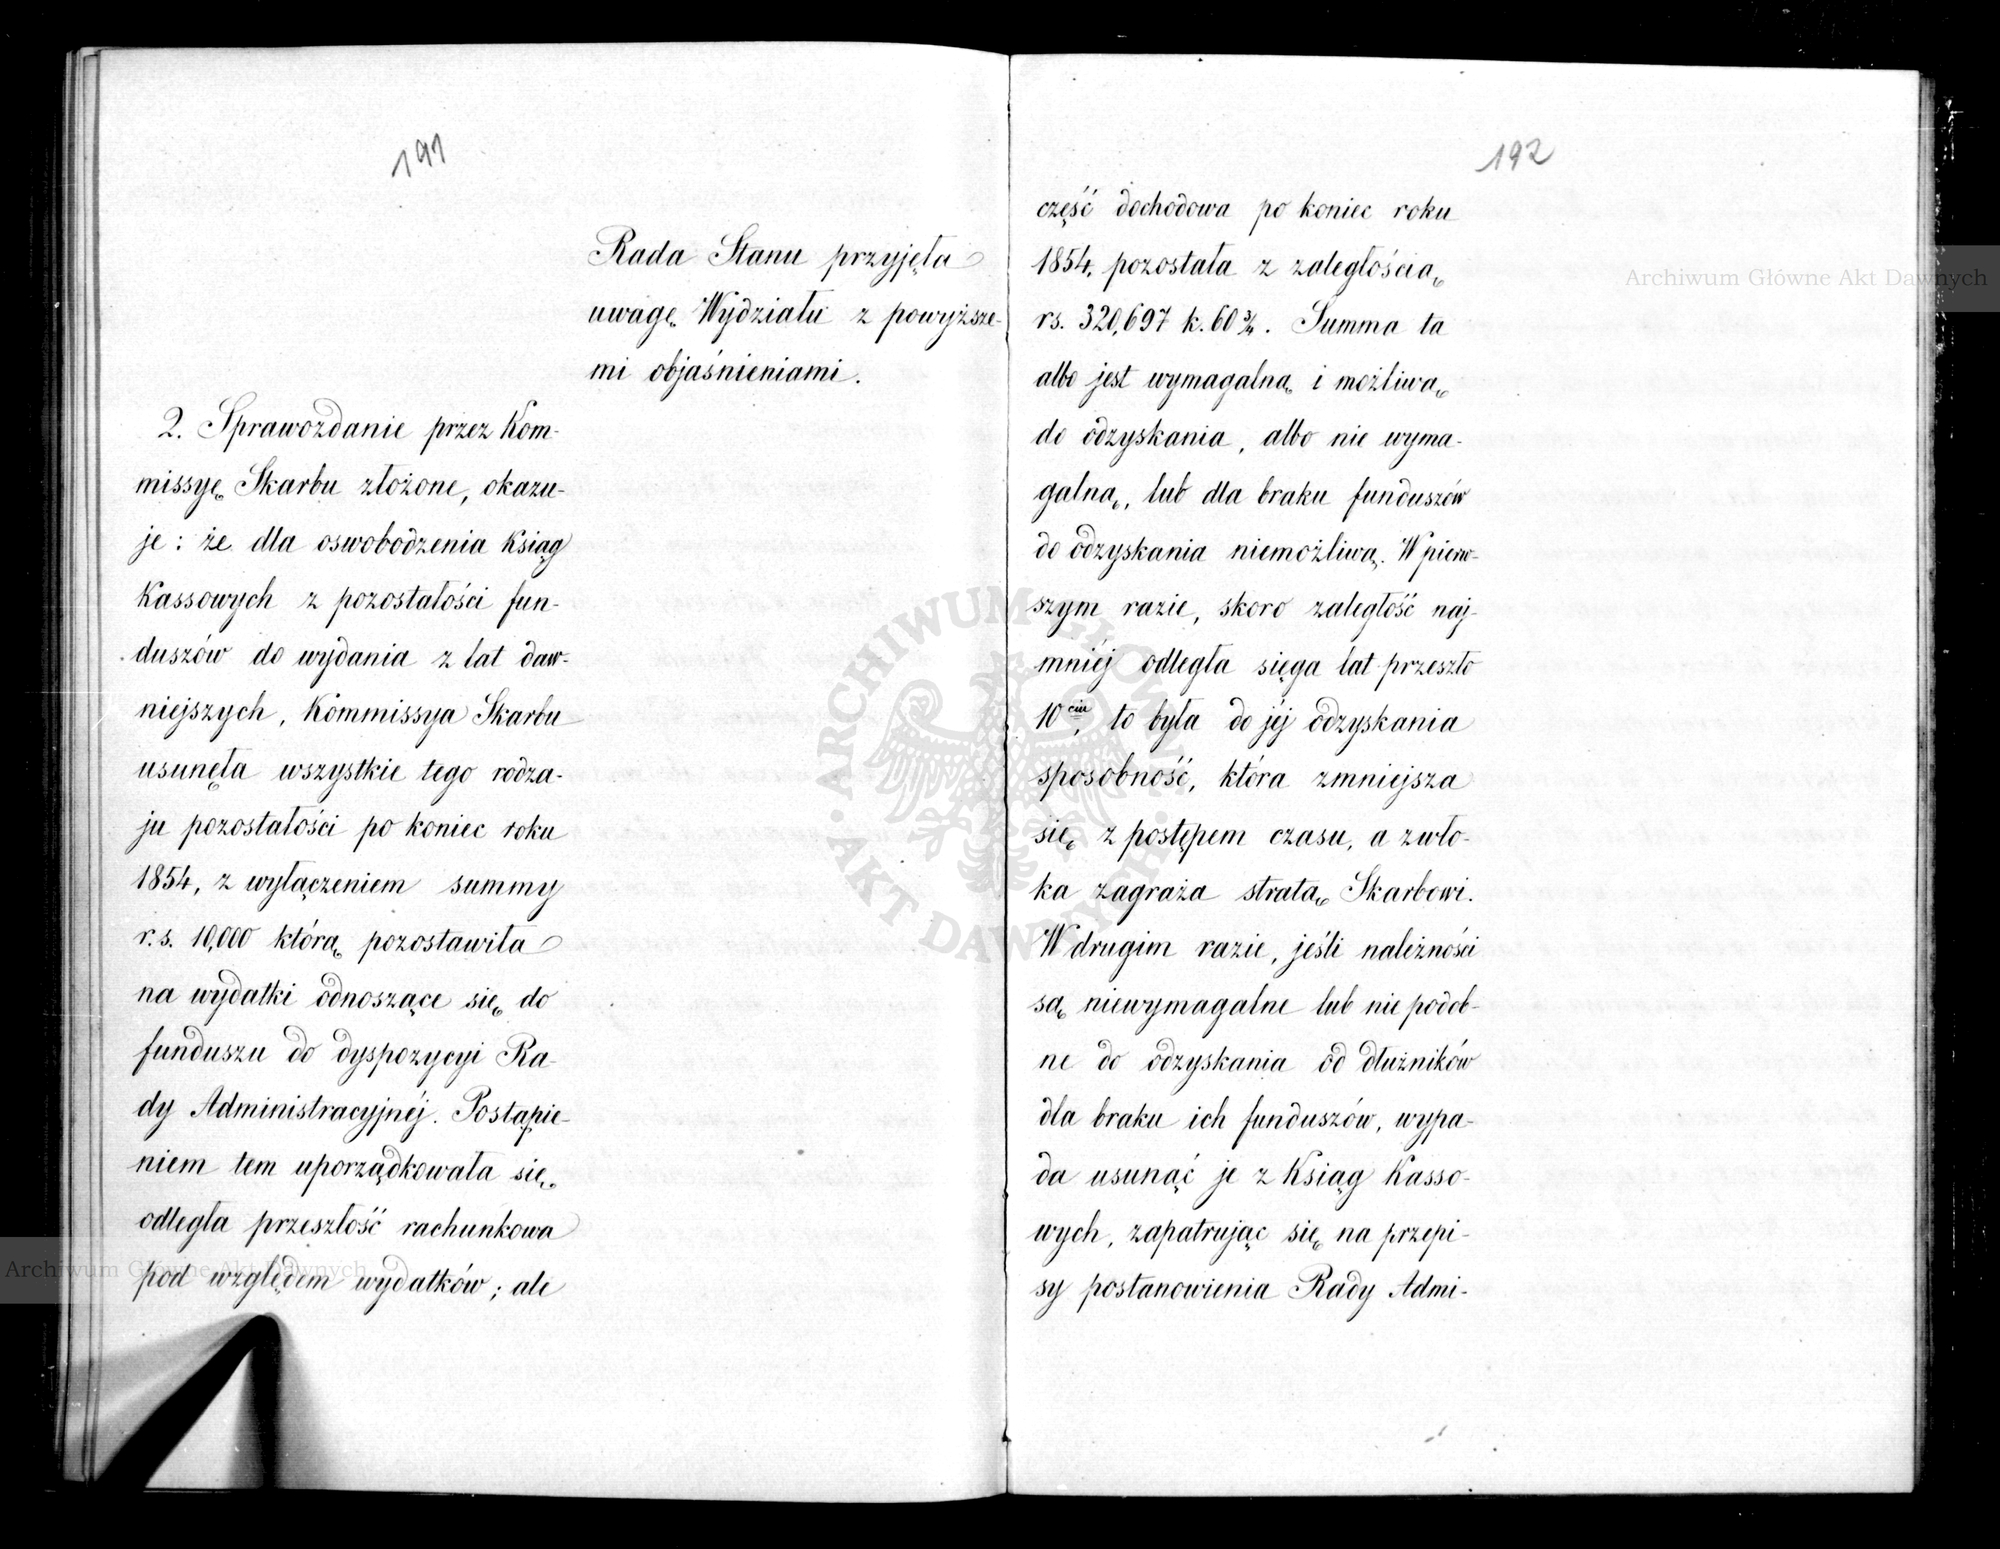 191
Rada Stanu przyjęła
uwagę Wydziału z powyższe-
mi objaśnieniami.
2. Sprawozdanie przez Kom-
missyę Skarbu złożone, okazu-
je: że dla oswobodzenia Ksiąg
Kassowych z pozostałości fun-
duszów do wydania z lat daw-
niejszych, Kommissya Skarbu
usunęła wszystkie tego rodza-
ju pozostałości po koniec roku
1854, z wyłączeniem summy
r.s. 10,000 którą pozostawiła
na wydatki odnoszące się do
funduszu do dyspozycyi Ra-
dy Administracyjnéj. Postąpie-
niem tem uporządkowała się
odległa przeszłość rachunkowa
pod względem wydatków; ale
192
część dochodowa po koniec roku
1854, pozostała z zaległością
rs. 320,697 k. 60 3/4. Summa ta
albo jest wymagalną i możliwą
do odzyskania, albo nie wyma-
galną, lub dla braku funduszów
do odzyskania niemożliwą. W pierw-
szym razie, skoro zaległość naj-
mniéj odległa sięga lat przeszło
10ciu, to była do jéj odzyskania
sposobność, która zmniejsza
się z postępem czasu, a zwło-
ka zagraża stratą Skarbowi.
W drugim razie, jeśli należności
są niewymagalne lub nie podob-
ne do odzyskania od dłużników
dla braku ich funduszów, wypa-
da usunąć je z Ksiąg Kasso-
wych, zapatrując się na przepi-
sy postanowienia Rady Admi-
Archiwum Główne Akt Dawnych
Archiwum Główne Akt Dawnych
ARCHIWUM GŁÓWNE AKT DAWNYCH